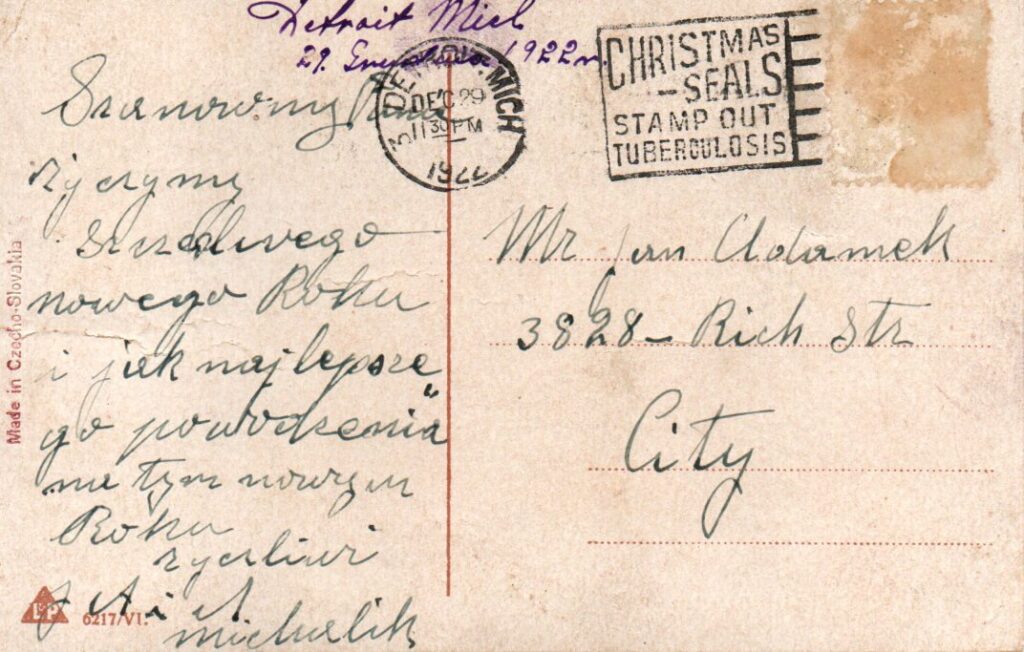 Detroit Mich
29. Grudnia 1922 r.
DETROIT, MICH
DEC 29
1130 PM
1922
CHRISTMAS
SEALS
STAMP OUT
TUBERCULOSIS
Szanowny Panie
Zyczymy
szczeliwego
nowego Roku
i jak najlepsze
go powodzenia
na tym nowym
Roku
zyczliwi
A i A
Michalik
Mr Jan Adamek
3828 – Rich Str
City
Made in Czecho-Slovakia
L&P
6217/VI.